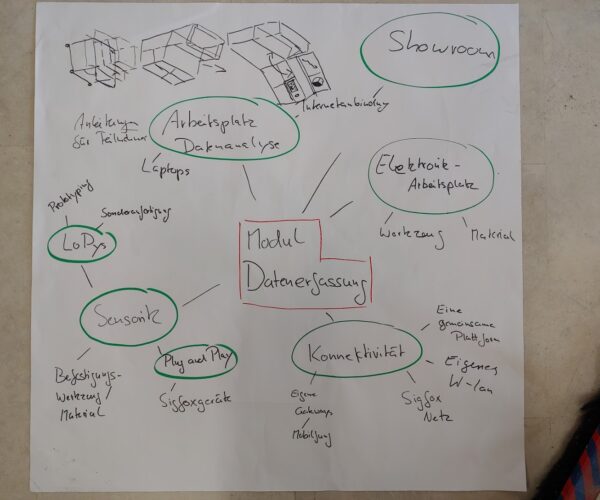 Showroom
Arbeitsplatz
Datenanalyse
Internetanbindung
Anleitungen
für Teilnehmer
Laptops
Elektronik-
Arbeitsplatz
Werkzeug
Material
Prototyping
Sonderanfertigung
LoPys
Modul
Datenerfassung
Sensorik
Plug and Play
Sigfoxgeräte
Befestigungs-
Werkzeug/
Material
Konnektivität
Eine
gemeinsame
Plattform
Eigenes
W-lan
Sigfox
Netz
Eigene